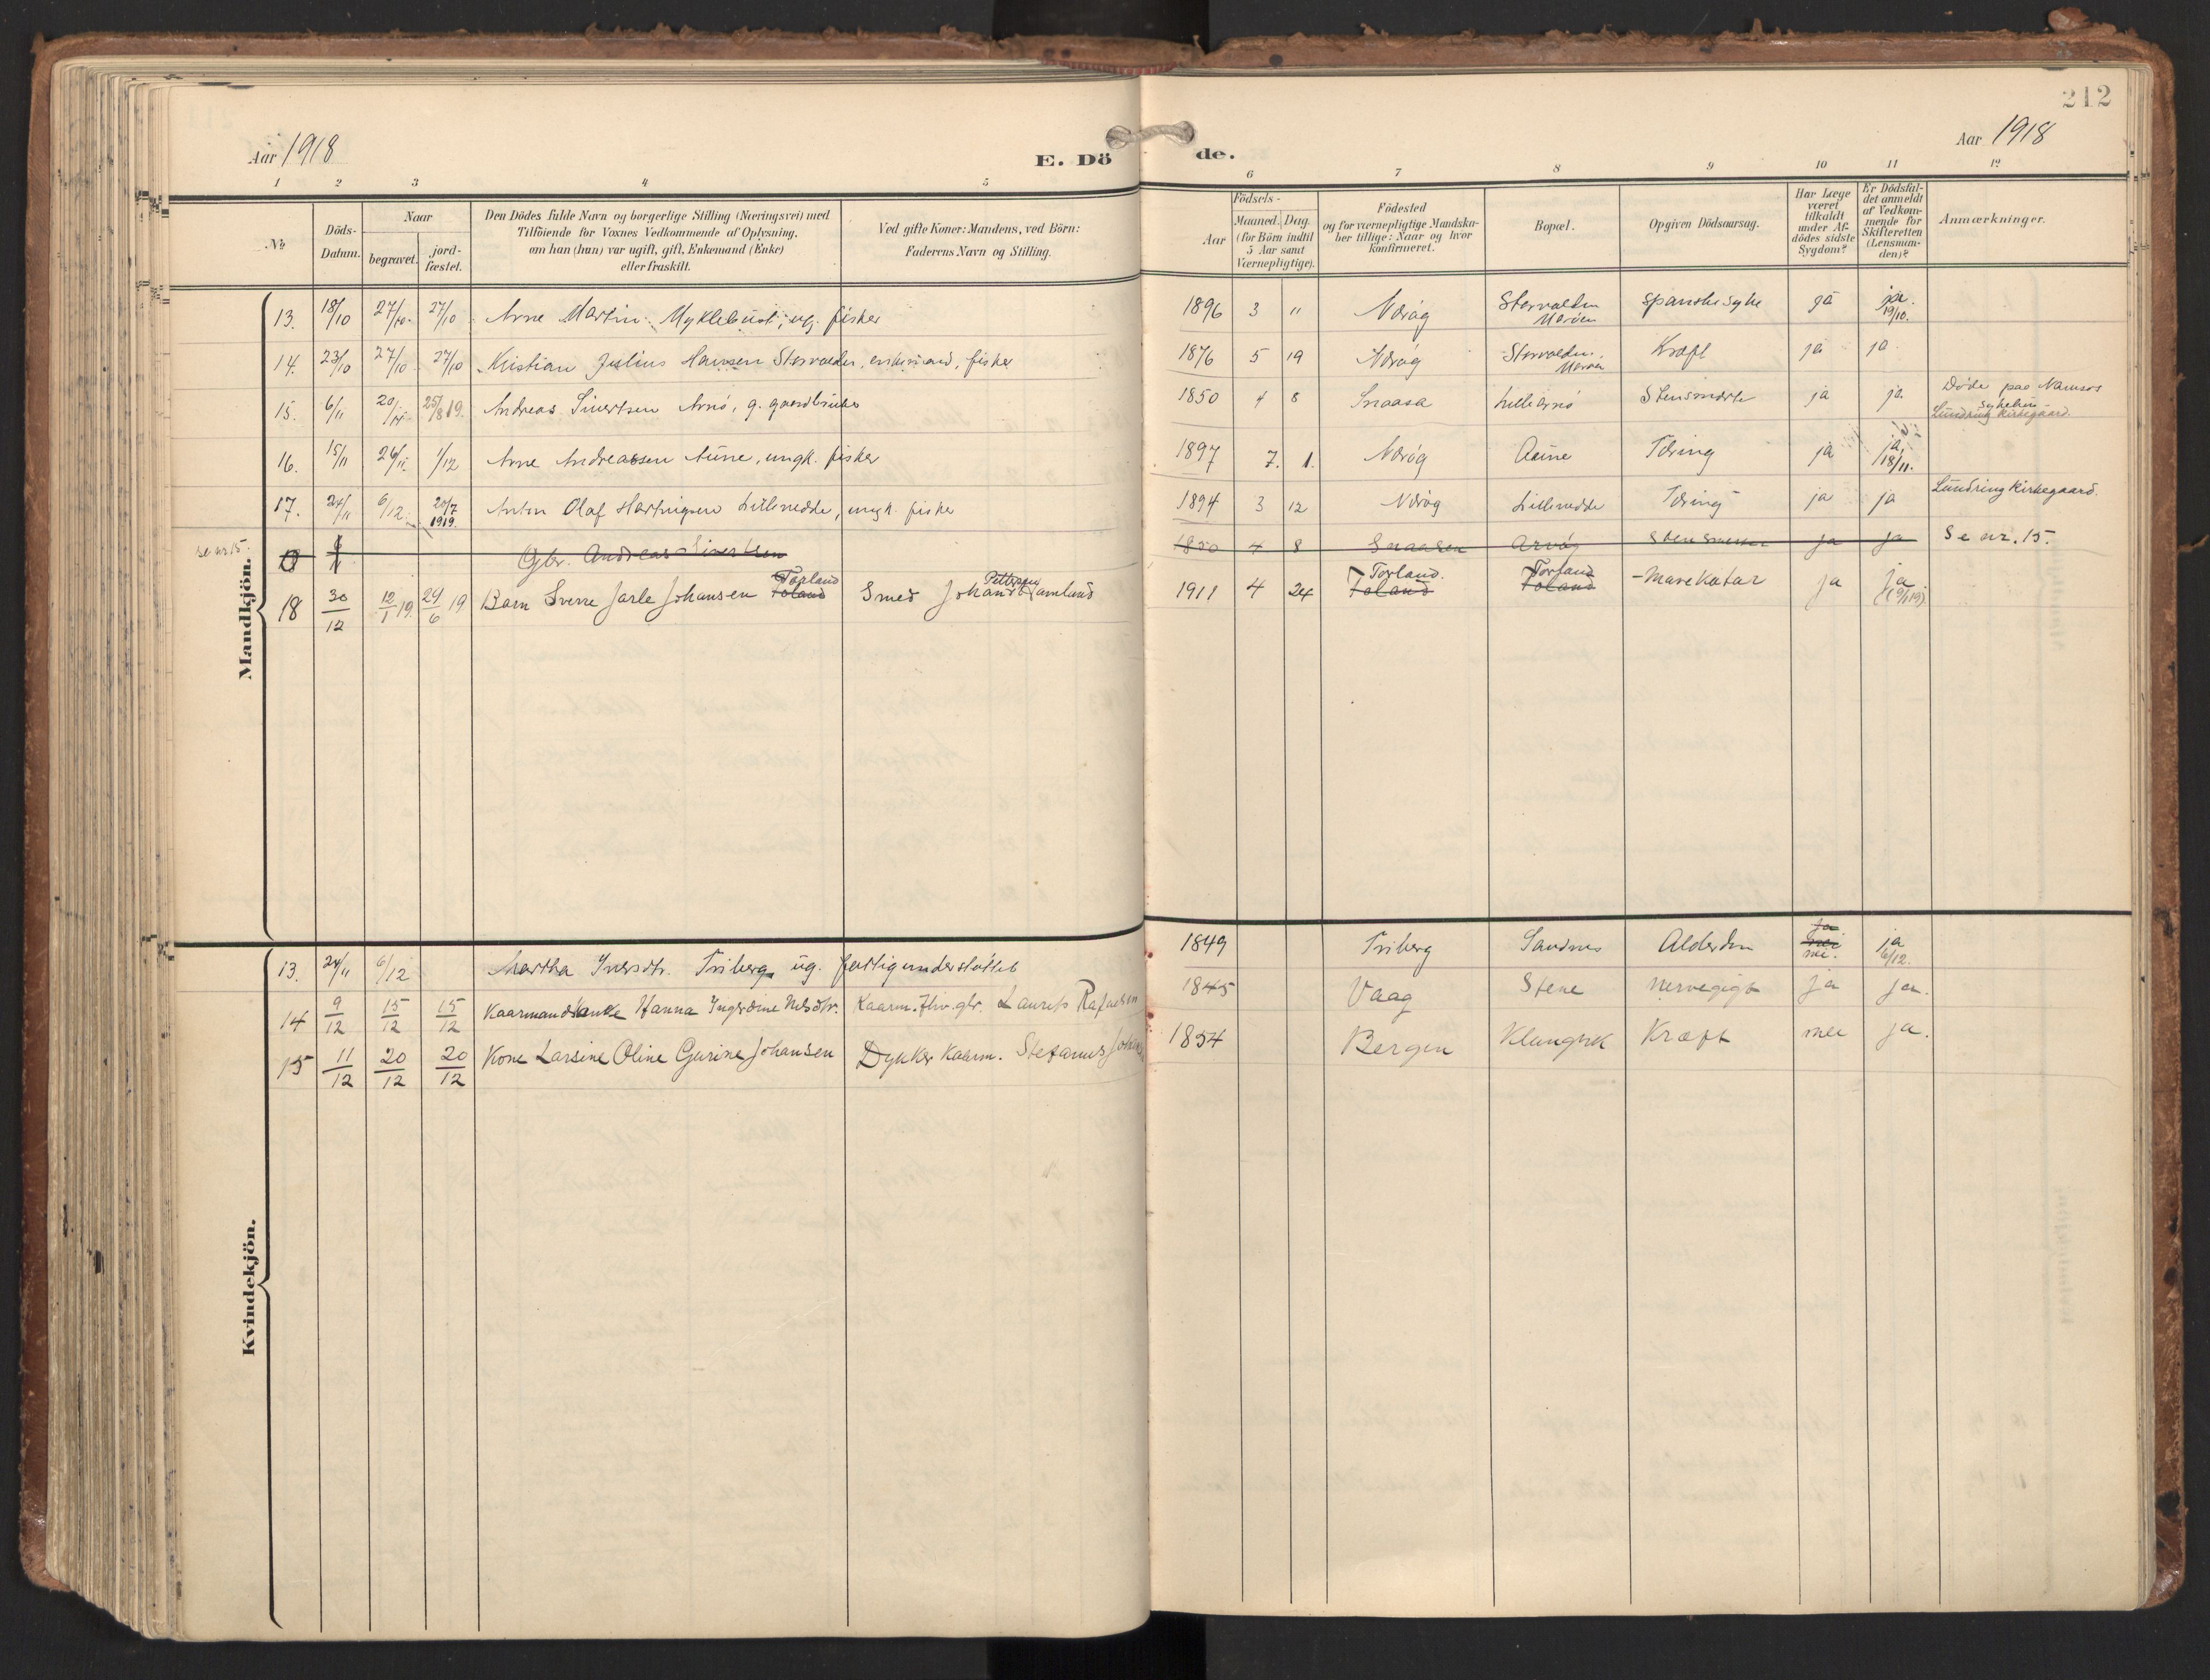 212
Aar 1918
E. Döde.
Aar 1918
1 2 3 4 5 6 7 8 9 10 11 12
№
Döds-Datum.
Naar
begravet.
jord-fæstet.
Den Dödes fulde Navn og borgerlige Stilling (Næringsvei) med
Tilföiende for Voxnes Vedkommende af Oplysning,
om han (hun) var ugift, gift, Enkemand (Enke)
eller fraskilt.
Ved gifte Koner: Mandens, ved Börn:
Faderens Navn og Stilling.
Födsels-
Aar
Maaned. Dag.
(for Börn indtil
5 Aar samt
Værnepligtige).
Födested
og for værnepligtige Mandska-
ber tillige: Naar og hvor
konfirmeret.
Bopæl.
Opgiven Dödsaarsag.
Har Læge
været
tilkaldt
under Af-
dödes sidste
Sygdom?
Er Dödsfal-
det anmeldt
af Vedkom-
mende for
Skifteretten
(Lensman-
den)?
Anmærkninger.
Mandkjön.
13. 18/10 27/10 27/10 Arne Martin Myklebust, ug. fisker 1896 3 " Nærøy spanskesyke ja ja. 19/10.
14. 23/10 27/10 27/10 Kristian Julius Hansen enkemand, fisker 1876 5 19 Nærøy Kræft ja ja
15. 6/11 20/11 25/8 19. Andreas Sivertsen Arnø, g. gaardbruker 1850 4 8 Snaasa Lillearnø ja ja. Døde paa Namsos
sykehus
Lundring Kirkegaard.
16. 15/11 26/11 1/12 Arne Andreassen Aune, ungk. fisker 1897 7. 1. Nærøy Aune Tæring ja ja, 18/11.
17. 24/11 6/12 20/7 1919. Anton Olaf ungk. fisker 1894 3 12 Nærøy Tæring ja ja Lundring Kirkegaard.
se nr 15. Gbr. Andreas Sivertsen 1850 4 8 Snaasen Arnøy ja ja Se nr. 15.
18 30/12 12/1 19. 24/6 19 Barn Sverre Jarle Johansen Torland Foland Smed Johan Pettersen 1911 4 24 Torland. Foland Torland Foland Mavekatar ja ja
Kvindekjön.
13. 24/11 6/12 Martha Iversdtr. Triberg ug. fattigunderstøttet 1849 Triberg Sandnes Alderdom ja nei nei. ja 6/12.
14 9/12 15/12 15/12 Kaarmandsenke Hanna Ingerdine Nelsdtr. Kaarm. Laurits Rafaelsen 1845 Vaag Stene Nervegigt ja ja.
15 11/12 20/12 20/12 Kone Larsine Oline Gurine Johansen Dykker Kaarm. Stefanus 1854 Bergen Kræft nei ja.